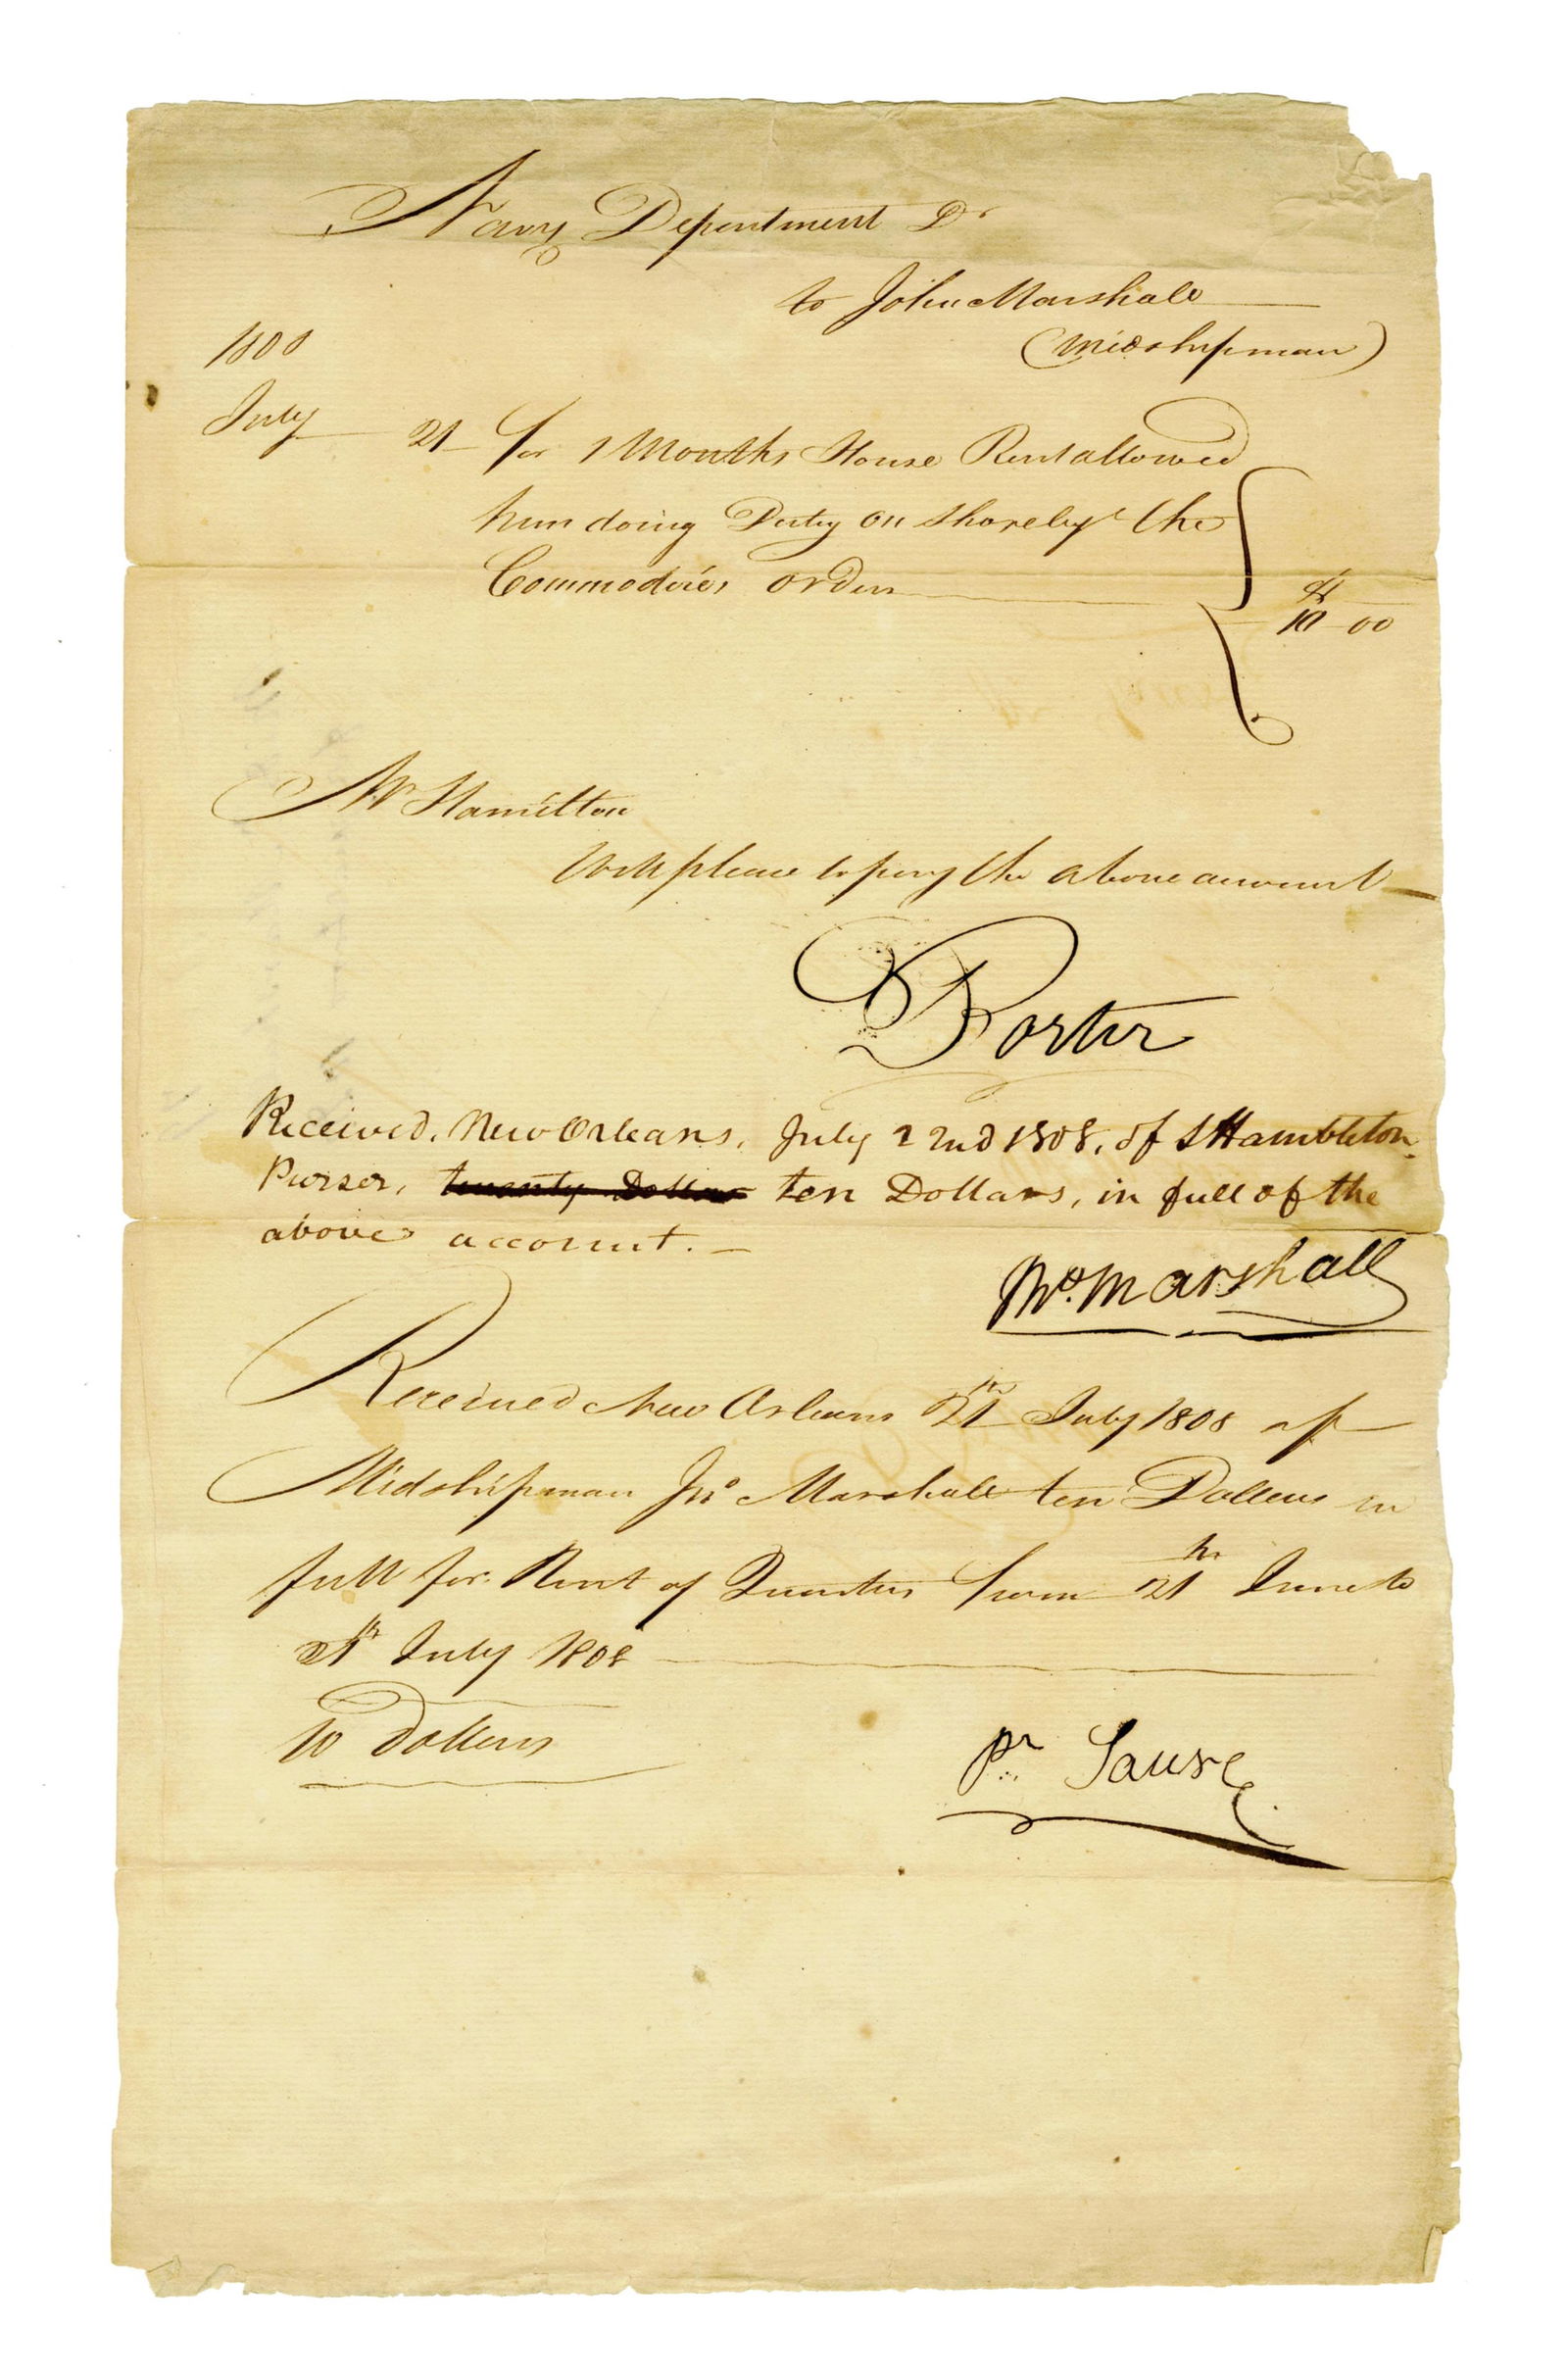 Navy Department Dr
to John Marshall
(Midshipman)
1808
July 21 for 1 Months House Rent allowed
him doing Duty on shore by the
Commodores order
$
10 00
Mr Hamilton
Will please to pay the above amount
D Porter
Received, New Orleans, July 22nd 1808, of S Hambleton
Purser, twenty Dollars ten Dollars, in full of the
above account. —
Jno. Marshall
Received New Orleans 21th July 1808 of
Midshipman Jno Marshall ten Dollers in
full for Rent of Quarters from 21th June to
21th July 1808
10 Dollers
Pr